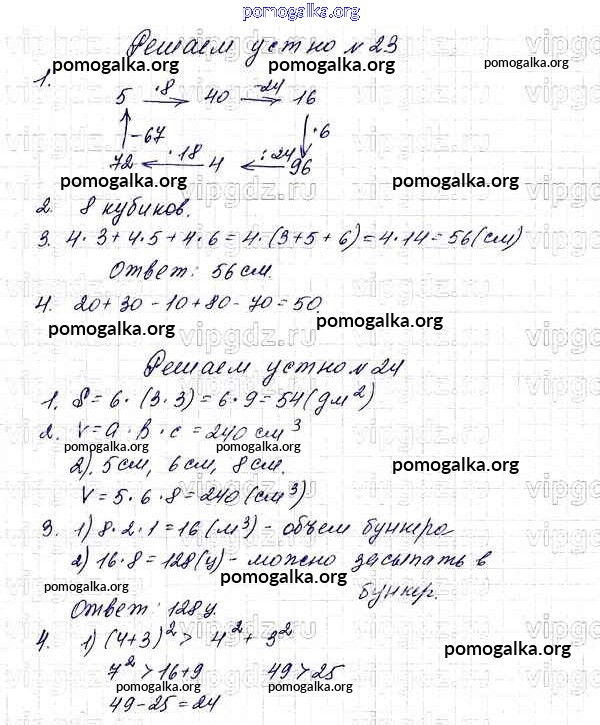 pomogalka.org
Решаем устно №23
pomogalka.org pomogalka.org pomogalka.org
1.
5 ·8 40 -24 16
-67 ·6
72 ·18 4 :24 96
pomogalka.org pomogalka.org
2. 8 кубиков.
3. 4·3+4·5+4·6=4·(3+5+6)=4·14=56(см)
Ответ: 56 см.
4. 20+30-10+80-70=50.
pomogalka.org pomogalka.org
vipgdz.ru
Решаем устно №24
1. S=6·(3·3)=6·9=54(дм²)
2. V=a·b·c=240 см³
pomogalka.org pomogalka.org
2). 5см, 6см, 8см.
pomogalka.org
V=5·6·8=240(см³)
3. 1) 8·2·1=16(м³)- объем бункера
2) 16·8=128(ц)- можно засыпать в
pomogalka.org pomogalka.org
бункер.
Ответ: 128ц.
4. 1) (4+3)²> 4²+3²
pomogalka.org pomogalka.org
7²>16+9 49>25
pomogalka.org pomogalka.org
49-25=24